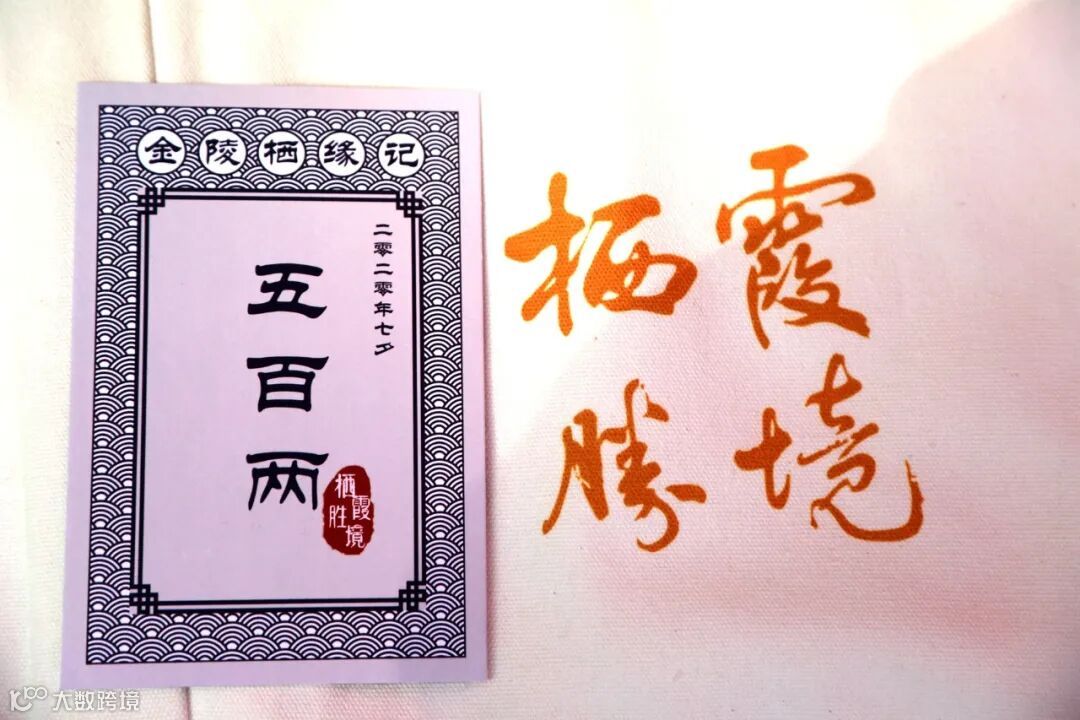 金陵栖缘记
二零二零年七夕
五百两
栖霞
胜境
栖霞
勝境
大数跨境